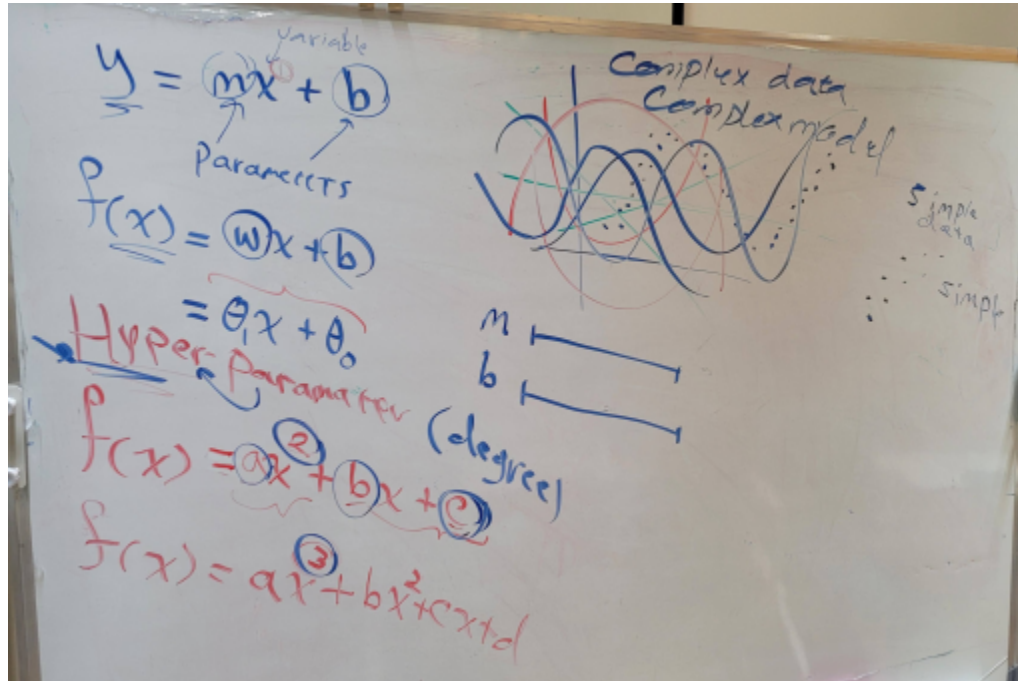 variable
y = mx + b
Parameters
f(x) = wx + b
= θ₁x + θ₀
Hyper-Parameter (degree)
f(x) = ax² + bx + c
f(x) = ax³ + bx² + cx + d
Complex data
Complex model
m
b
Simple
data
Simple